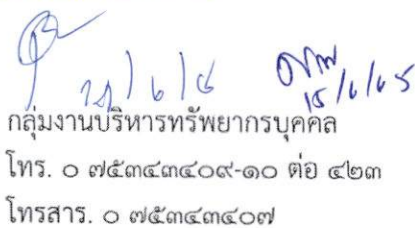 15/6/65
กลุ่มงานบริหารทรัพยากรบุคคล
โทร. ๐ ๗๕๓๔๓๔๐๙-๑๐ ต่อ ๔๒๓
โทรสาร. ๐ ๗๕๓๔๓๔๐๗